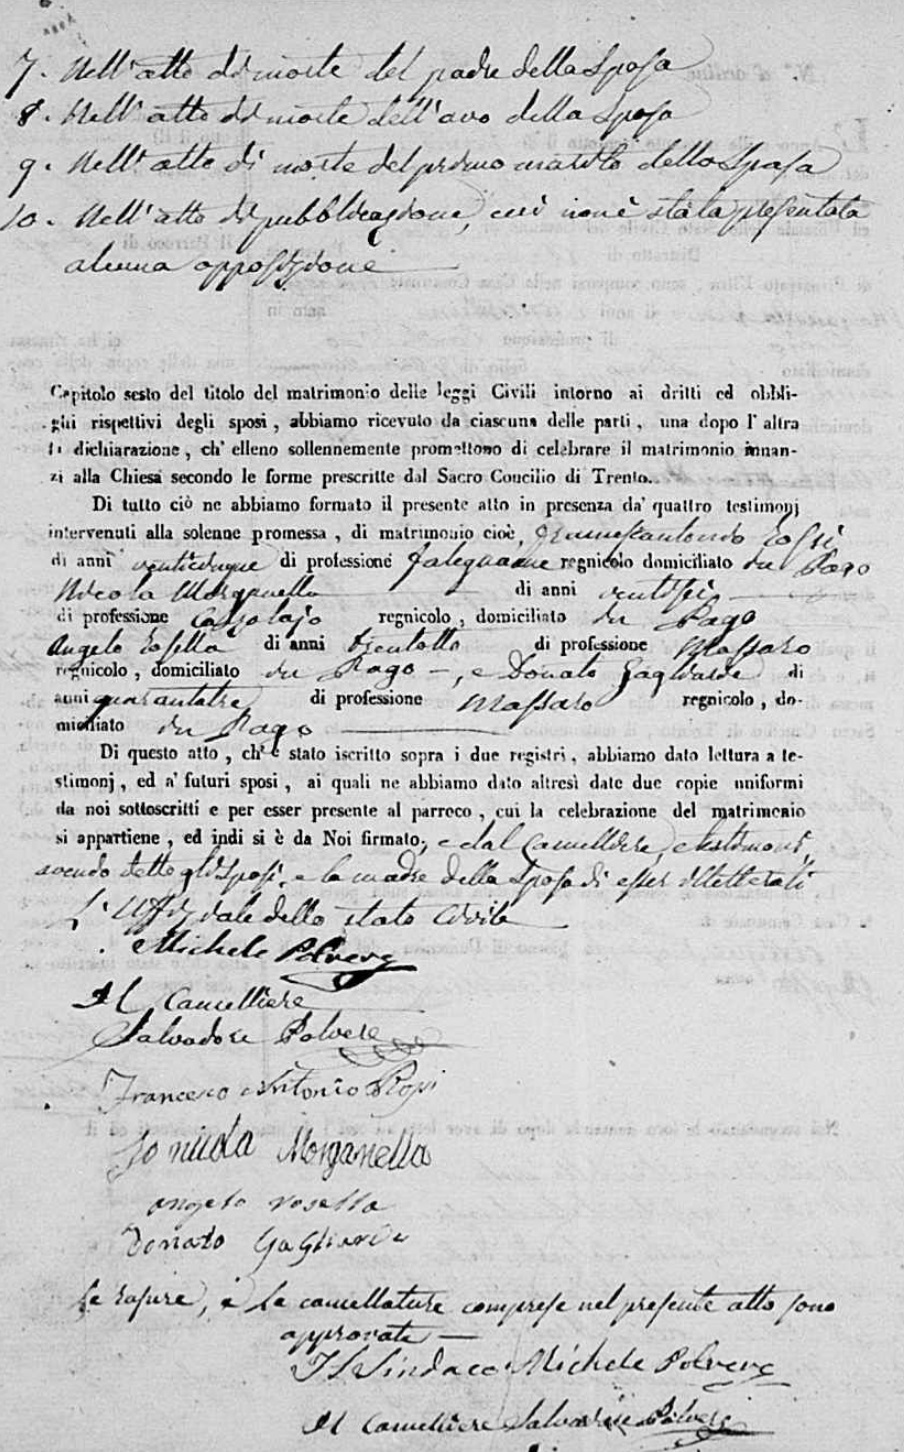 7. Nell'atto di morte del padre della Sposa
8. Nell'atto di morte dell'avo della Sposa
9. Nell'atto di morte del primo marito della Sposa
10. Nell'atto di pubblicazione, cui non è stata presentata
alcuna opposizione
Capitolo sesto del titolo del matrimonio delle leggi Civili intorno ai dritti ed obbli-
ghi rispettivi degli sposi, abbiamo ricevuto da ciascuna delle parti, una dopo l'altra
la dichiarazione, ch'elleno sollennemente promettono di celebrare il matrimonio innan-
zi alla Chiesa secondo le forme prescritte dal Sacro Concilio di Trento.
Di tutto ciò ne abbiamo formato il presente atto in presenza da' quattro testimonj
intervenuti alla solenne promessa, di matrimonio cioè, Francescantonio Rossi
di anni venticinque di professione falegname regnicolo domiciliato in Pago
Nicola Morganella di anni ventisei
di professione Calzolajo regnicolo, domiciliato in Pago
Angelo Rosella di anni trentotto di professione Massaro
regnicolo, domiciliato in Pago, e Donato Gagliarde di
anni quarantatre di professione Massaro regnicolo, do-
miciliato in Pago
Di questo atto, ch'è stato iscritto sopra i due registri, abbiamo dato lettura a te-
stimonj, ed a' futuri sposi, ai quali ne abbiamo dato altresì date due copie uniformi
da noi sottoscritti e per esser presente al parroco, cui la celebrazione del matrimonio
si appartiene, ed indi si è da Noi firmato, e dal Cancelliere, e testimonj,
avendo detto gli Sposi, e la madre della Sposa di esser illetterati
L'Uffiziale dello stato Civile
Michele Polvere
Il Cancelliere
Salvadore Polvere
Francesco Antonio Rossi
Io nicola Morganella
angelo rosella
Donato Gagliarde
Le rasure, e le cancellature comprese nel presente atto sono
approvate
Il Sindaco Michele Polvere
Il Cancelliere Salvadore Polvere